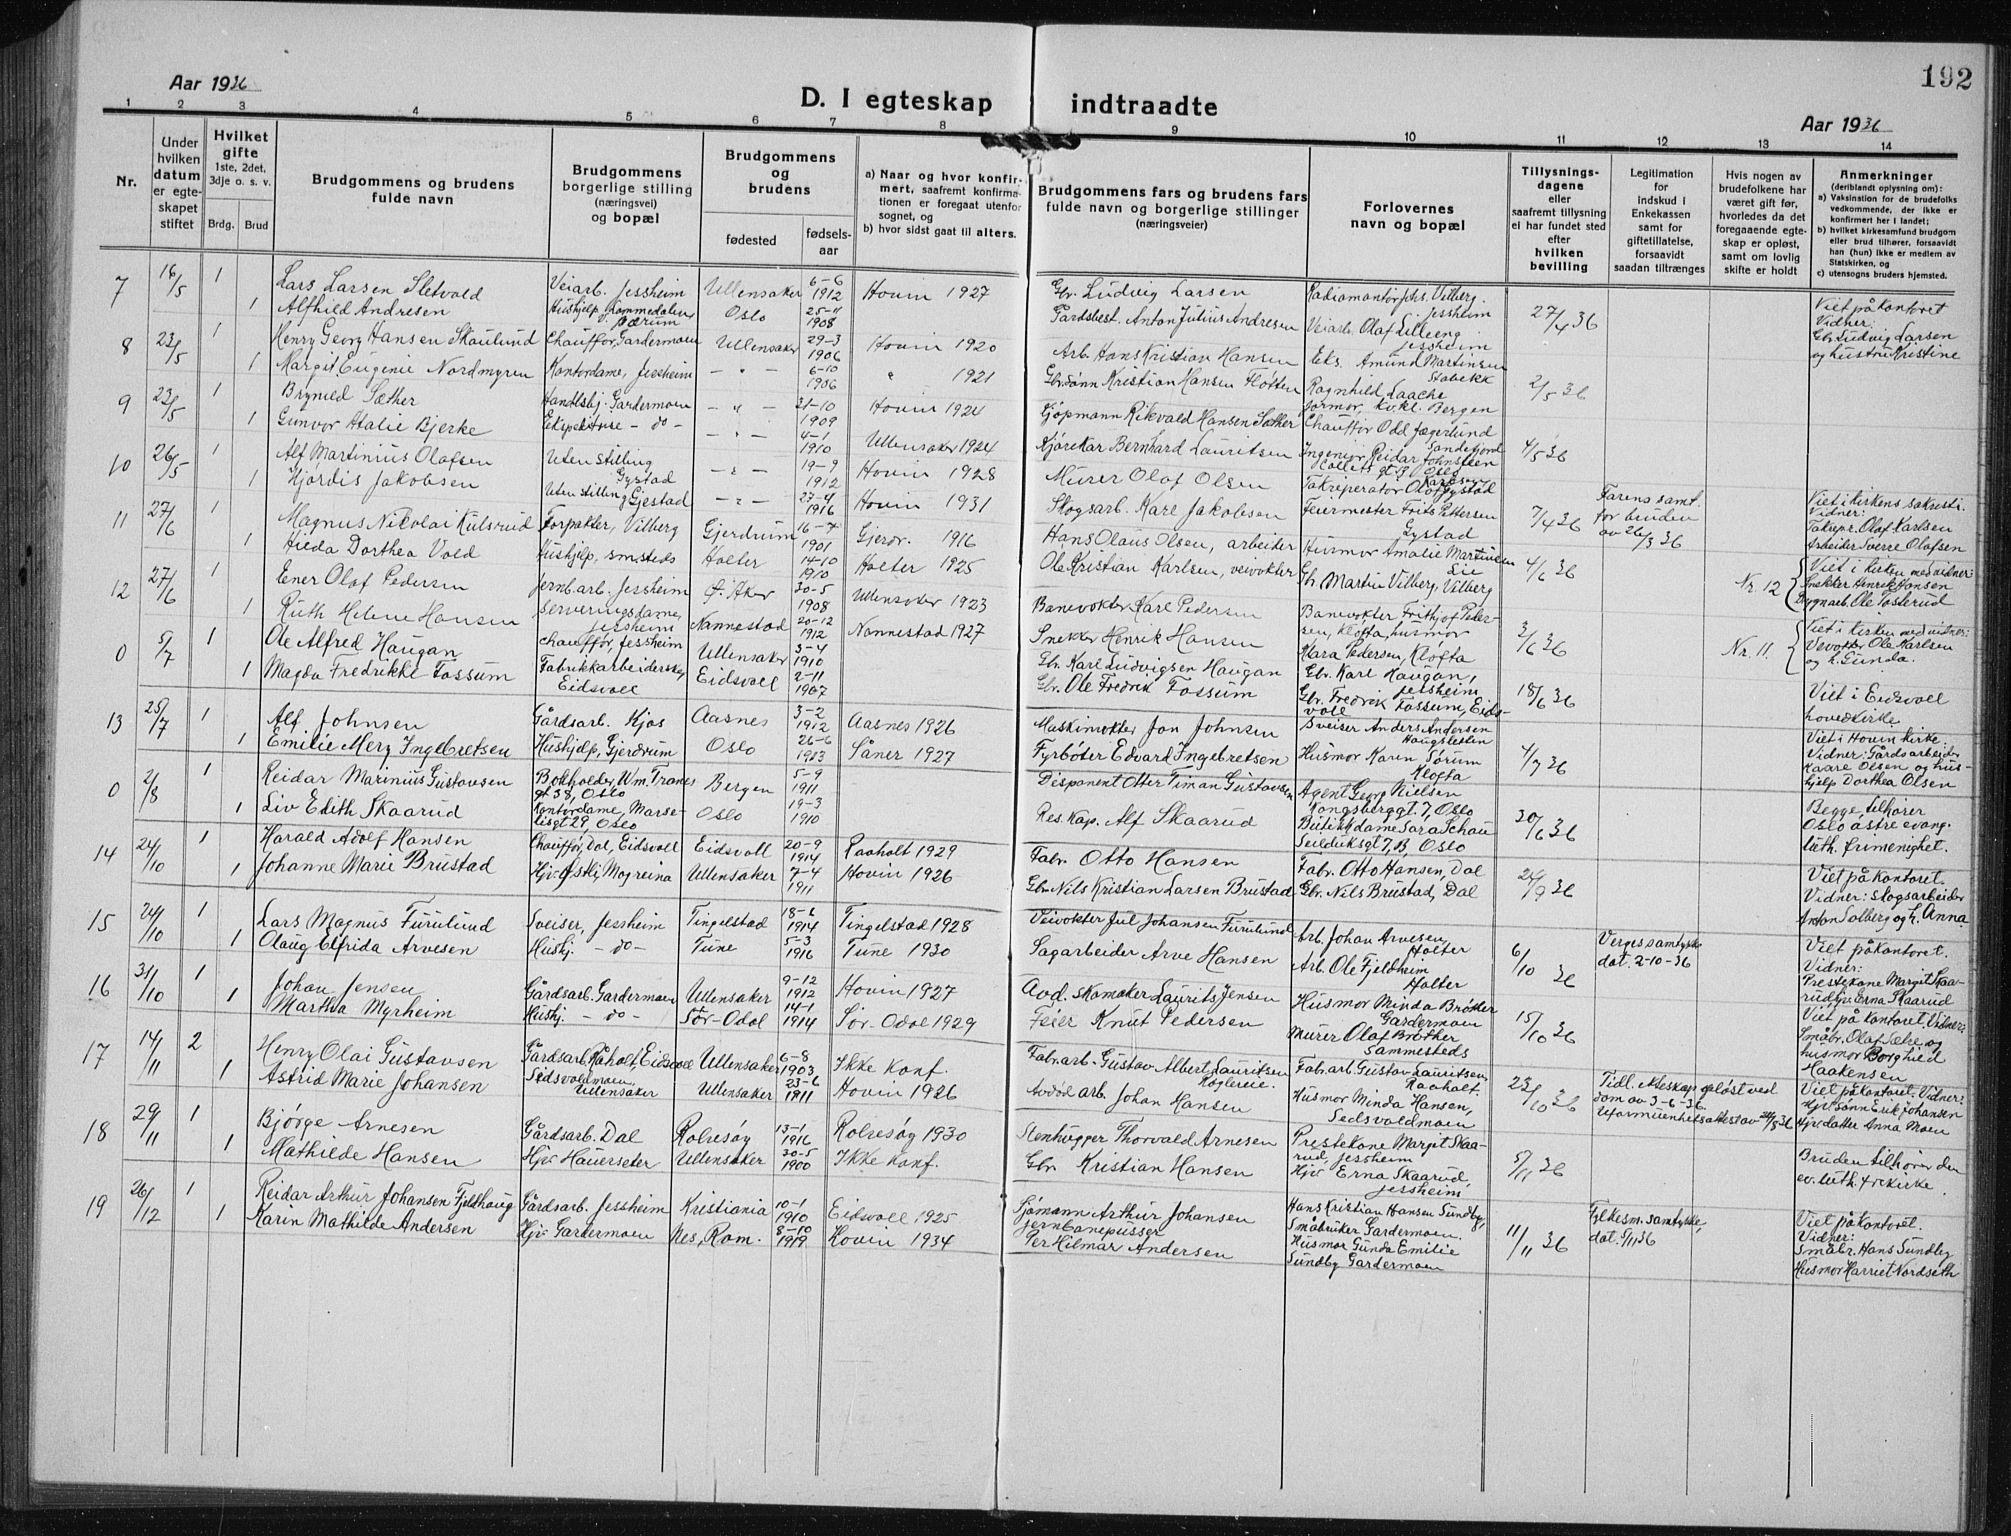 192
Aar 1936
D. I egteskap indtraadte
Aar 1936
1 2 3 4 5 6 7 8 9 10 11 12 13 14
Nr.
Under hvilken datum er egteskapet stiftet
Hvilket gifte
1ste, 2det, 3dje o. s. v.
Brdg. Brud
Brudgommens og brudens fulde navn
Brudgommens borgerlige stilling (næringsvei) og bopæl
Brudgommens og brudens
fødested
fødselsaar
a) Naar og hvor konfirmert, saafremt konfirmationen er foregaat utenfor sognet, og
b) hvor sidst gaat til alters.
Brudgommens fars og brudens fars fulde navn og borgerlige stillinger (næringsveier)
Forlovernes navn og bopæl
Tillysningsdagene eller saafremt tillysning ei har fundet sted efter hvilken bevilling
Legitimation for indskud i Enkekassen samt for giftetillatelse, forsaavidt saadan tiltrænges
Hvis nogen av brudefolkene har været gift før, hvorledes da det foregaaende egteskap er opløst, samt om lovlig skifte er holdt
Anmerkninger
(deriblandt oplysning om):
a) Vaksination for de brudefolks vedkommende, der ikke er konfirmert her i landet;
b) hvilket kirkesamfund brudgom eller brud tilhører, forsaavidt han (hun) ikke er medlem av Statskirken, og
c) utensogns bruders hjemsted.
7 16/5 1 Lars Larsen Sletvold Veiarb. Jessheim Ullensaker 6-6 1912 Hovin 1927 Gbr. Ludvig Larsen Jessheim 27/4 36 Viet på kontoret
1 Alfhild Andresen Hushjelp, Lommedalen, Bærum Oslo 25-11 1908 Anton Julius Andresen Veiarb. Olaf Lilleeng Jessheim Vidner: Gbr. Ludvig Larsen og hustru Kristine
8 23/5 1 Henry Georg Hansen Skaulund Chauffør, Gardermoen Ullensaker 29-3 1906 Hovin 1920 Arb. Hans Kristian Hansen Eks. Amund Martinsen Stabekk 2/5 36
1 Margit Eugenie Nordmyren Kontordame, Jessheim - " - 6-10 1906 " 1921 Gbr.sønn Kristian Hansen Fløtten Ragnhild Laache Bergen
9 23/5 1 Brynild Sæther Handelsbj. Gardermoen - " - 31-10 1909 Hovin 1924 Kjøpmann Rikvald Hansen Sæther Chauffør Odd Jægerlund Sandefjord 4/5 36
1 Gunvor Atalie Bjerke - do - - " - 4-1 1910 Ullensaker 1924 Kjørekar Bernhard Lauritsen Ingeniør Reidar Johnsteen Colletts gt. Oslo
10 26/5 1 Alf Martinius Olafsen Uten stilling Gystad - " - 19-9 1912 Hovin 1928 Murer Olaf Olsen Olaf Karlsen Gystad 7/4 36 Farens samt. for bruden av 26/3 36 Viet i kirkens sakresti.
1 Hjørdis Jakobsen Uten stilling Gjestad - " - 27-4 1916 Hovin 1931 Skogsarb. Karl Jakobsen Feiermester Frits Pettersen Gystad Vidner: Olaf Karlsen Arbeider Sverre Olafsen
11 27/6 1 Magnus Nikolai Kulsrud Forpakter, Vilberg Gjerdrum 16-7 1901 Gjerdr. 1916 Hans Olaus Olsen, arbeider Husmor Amalie Martinsen Lie 4/6 36 Nr. 12 Viet i kirken med vidner:
1 Hilda Dorthea Vold Hushjelp, smsteds Holter 14-10 1910 Holter 1925 Ole Kristian Karlsen, veivokter Gb. Martin Vilberg, Vilberg Snekker Henrik Hansen Bygnarb. Ole Tosterud
12 27/6 1 Einer Olaf Pedersen Jernb.arb. Jessheim Ø. Aker 30-5 1908 Ullensaker 1923 Banevokter Karl Pedersen Banevokter Frithjof Pedersen, Kløfta, husmor 3/6 36 Nr. 11. Viet i kirken med vidner:
1 Ruth Helene Hansen Serveringsdame, Jessheim Nannestad 20-12 1912 Nannestad 1927 Snekker Henrik Hansen Klara Pedersen, Kløfta Veivokter Ole Karlsen og h. Gunda.
0 5/7 1 Ole Alfred Haugan Chauffør, Jessheim Ullensaker 3-4 1910 Gbr. Karl Ludvigsen Haugan Gbr. Karl Haugan, Jessheim 18/6 36 Viet i Eidsvoll hovedkirke
1 Magda Fredrikke Fossum Fabrikkarbeiderske, Eidsvoll Eidsvoll 2-11 1907 Gbr. Ole Fredrik Fossum Gbr. Fredrik Fossum, Eidsvoll
13 25/7 1 Alf Johnsen Gårdsarb. Kjos Aasnes 3-2 1912 Aasnes 1926 Maskinvokter Jon Johnsen Sveiser Anders Andersen Haugsletten 4/7 36 Viet i Hovin kirke.
1 Emilie Mery Ingebretsen Hushjelp, Gjerdrum Oslo 26-6 1913 Såner 1927 Fyrbøter Edvard Ingebretsen Husmor Karen Sørum Kløfta Vidner: Gårdsarbeider Kaare Olsen og hushjelp Dorthea Olsen
0 2/8 1 Reidar Marinius Gustavsen Bokholder, Wm. Tranes gt 38, Oslo Bergen 5-9 1911 Disponent Otter Timan Gustavsen Agent Georg Nielsen Kongsberggt. 7, Oslo 30/6 36 Begge tilhører
1 Liv Edith Skaarud Kontordame, Marselisgt 29, Oslo Oslo 19-3 1910 Res. Kap. Alf Skaarud Butikkdame Sara Schau Seilduksgt 7, B, Oslo Oslo østre evang. luth. frimenighet.
14 24/10 1 Harald Adolf Hansen Chauffør, Dal, Eidsvoll Eidsvoll 20-9 1914 Raaholt 1929 Fabr. Otto Hansen Fabr. Otto Hansen, Dal 24/9 36 Viet på kontoret.
1 Johanne Marie Brustad Hjv. Østli, Mogreina Ullensaker 7-4 1911 Hovin 1926 Gbr. Nils Kristian Larsen Brustad Gbr. Nils Brustad, Dal Vidner: Skogsarbeider Anton Solberg og h. Anna
15 24/10 1 Lars Magnus Furulund Sveiser, Jessheim Tingelstad 18-6 1914 Tingelstad 1928 Veivokter Jul Johansen Furulund Arb. Johan Arvesen, Holter 6/10 36 Verges samtykke dat. 2-10-36 Viet på kontoret.
1 Olaug Elfrida Arvesen Hushj. - do - Tune 5-3 1916 Tune 1930 Sagarbeider Arve Hansen Arb. Ole Fjeldheim Holter Vidner: Prestekone Margit Skaarud, hjv. Erna Skaarud
16 31/10 1 Johan Jensen Gårdsarb. Gardermoen Ullensaker 9-12 1912 Hovin 1927 Avd. skomaker Laurits Jensen Husmor Minda Brøther Gardermoen 15/10 36 Viet på kontoret. Vidner:
1 Martha Myrheim Hushj. - do - Sør-Odal 14-1 1914 Sør-Odal 1929 Feier Knut Pedersen Murer Olaf Brøther Sammesteds Småbr. Olaf Sæhe og husmor Borghild Haakensen
17 14/11 2 Henry Olai Gustavsen Gårdsarb. Råholt, Eidsvoll Ullensaker 6-8 1903 Ikke konf. Fabr.arb. Gustav Albert Lauritsen Fabr.arb. Gustav Lauritsen, Raaholt. 23/10 36 Tidl. ekteskap opløst ved dom av 3-6-36. Viet på kontoret. Vidner:
1 Astrid Marie Johansen Sesvoldmoen, Ullensaker Ullensaker 23-6 1911 Hovin 1926 Avdød arb. Johan Hansen Husmor Minda Hansen, Sesvoldmoen Hjv. sønn Erik Johansen Hjv. datter Anna Moen
18 29/11 1 Bjørge Arnesen Gårdsarb. Dal Rolvsøy 13-1 1916 Rolvsøy 1930 Stenhugger Thorvald Arnesen Prestekone Margit Skaarud, Jessheim 5/11 36 Bruden tilhører den
1 Mathilde Hansen Hjv. Hauerseter Ullensaker 30-5 1900 Ikke konf. Gbr. Kristian Hansen Hjv. Erna Skaarud, Jessheim ev. luth. frikirke.
19 26/12 1 Reidar Arthur Johansen Fjeldhaug Gårdsarb. Jessheim Kristiania 10-1 1910 Eidsvoll 1925 Sjømann Arthur Johansen Hans Kristian Hansen Sundby, Småbruker Gardermoen. 11/11 36 Fylkesm. samtykke, dat. 5/11 36 Viet på kontoret.
1 Karin Mathilde Andersen Hjv. Gardermoen Nes, Rom. 8-10 1919 Hovin 1934 Jernbanepusser Per Hilmar Andersen Husmor Gunda Emilie Sundby Gardermoen Vidner: Småbr. Hans Sundby Husmor Harriet Nordseth